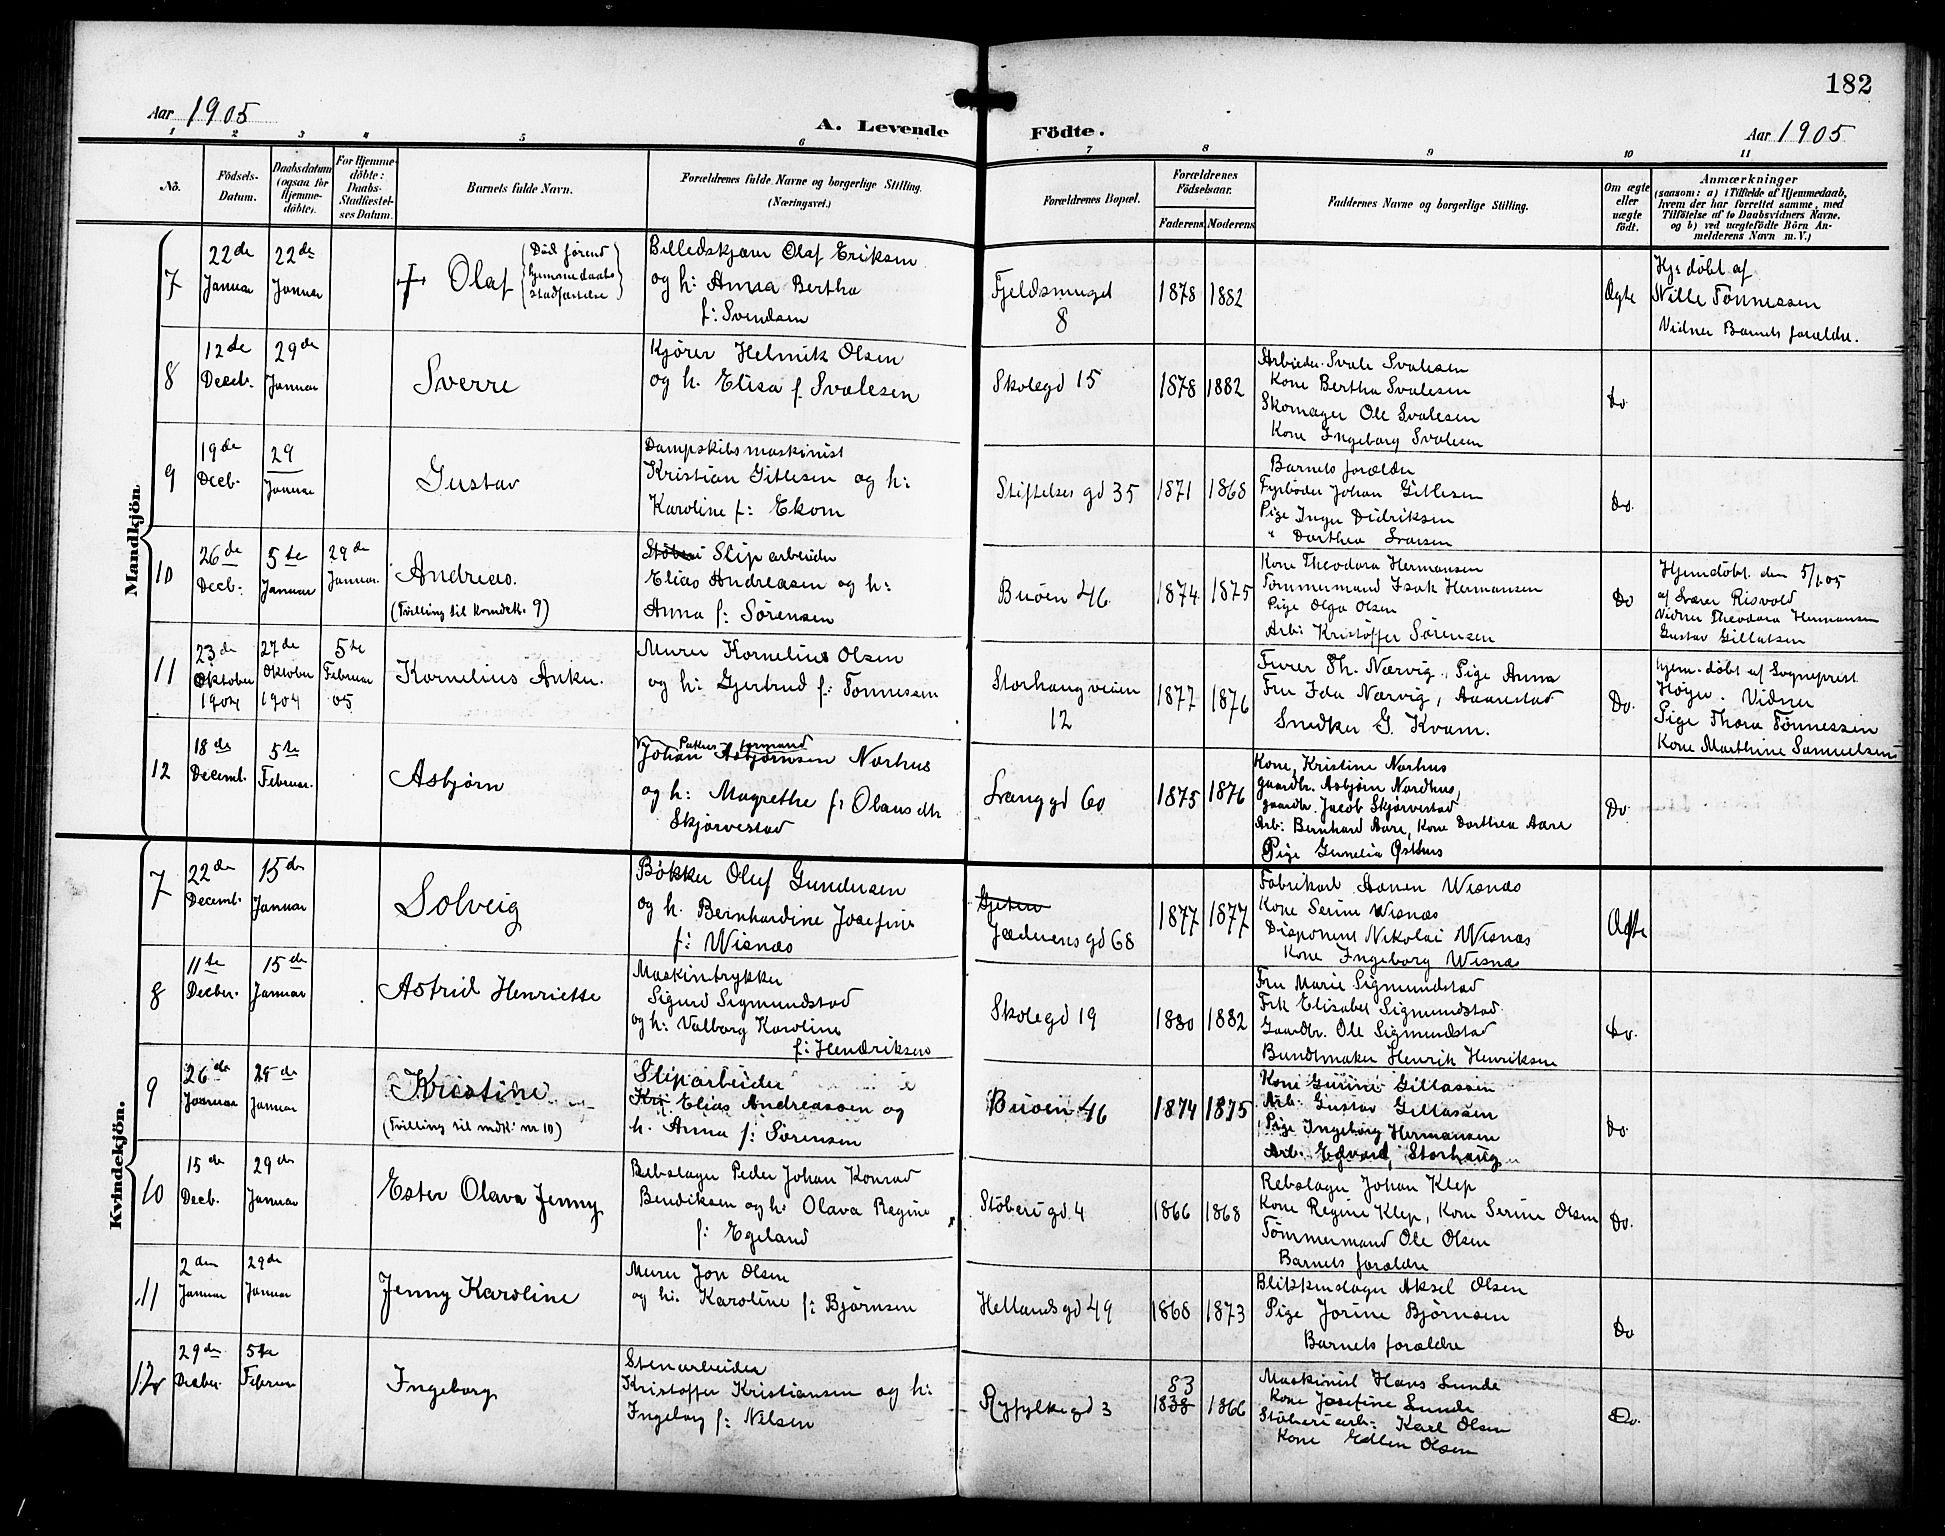 182
Aar 1905
A. Levende Födte.
Aar 1905
1 2 3 4 5 6 7 8 9 10 11
No.
Fødsels-
Datum.
Daabsdatum
(ogsaa for
Hjemme-
döbte).
For Hjemme-
döbte:
Daabs-
Stadfæstel-
ses Datum.
Barnets fulde Navn.
Forældrenes fulde Navne og borgerlige Stilling.
(Næringsvei.)
Forældrenes Bopæl.
Forældrenes
Födselsaar.
Faderens Moderens
Faddernes Navne og borgerlige Stilling.
Om ægte
eller
uægte
födt.
Anmærkninger
(saasom: a) i Tilfælde af Hjemmedaab,
hvem der har forrettet samme, med
Tilföielse af to Daabsvidners Navne.
og b) ved uægtefödte Börn An-
melderens Navn m. V.)
Mandkjön
7
22de
Januar
22de
Januar
Olaf
(Död förend
hjemmedaabs
stadfæstelse)
Billedskjærer Olaf Eriksen
og h: Anna Bertha
f: Svendsen
Fjeldsmuget
8
1878 1882
Ægte
Hj: döbt af
Nille Tönnessen
Vidner Barnets forældre.
8
12de
Decb.
29de
Januar
Sverre
Kjörer Helmik Olsen
og h. Elisa f. Svalesen
Skolegd 15
1878 1882
Arbeider Svale Svalesen
Kone Bertha Svalesen
Skomager Ole Svalesen
Kone Ingeborg Svalesen
Do
9
19de
Decb.
29
Januar
Gustav
Dampskibsmaskinist
Kristian Gitlesen og h:
Karoline f: Ekom
Stiftelses gd 35
1871 1868
Barnets forældre
Fyrböder Johan Gitlesen
Pige Inga Didriksen
" Dorthea Svaesen
Do.
10
26de
Decb.
5te
Januar
29de
Januar.
Andreas.
(Tvilling til kvindek. 9)
Sliparbeider
Elias Andreasen og h:
Anna f: Sörensen
Buöen 46
1874 1875
Kone Theodora Hermansen
Tömmermand Isak Hermansen
Pige Olga Olsen
Arb: Kristoffer Sörensen
Do
Hjemdöbt den 5/1 05
af Sværer Risvold
Vidner Theodora Hermansen
Gustav Gillatsen
11
23de
Oktober
1904
27de
Oktober
1904
5te
Februar
05
Kornelius Anker.
Murer Kornelius Olsen
og h: Gjertrud f: Tönnessen
Storhaugveien
12
1877 1876
Furer Th. Nærvig, Pige Anna
Fru Ida Nærvig, Aarestad
Snedker G. Kvam.
Do.
hjem. döbt af Sognepræst
Höyer. Vidner
Pige Thora Tönnessen
Kone Marthine Samuelsen
12
18de
Decemb.
5te
Februar.
Asbjörn
Pakhusformand
Johan Asbjörnsen Norhus
og h: Magrethe f: Olausdtr
Skjörvestad
Svanegd 60
1875 1876
Kone, Kristine Norhus
gaardbr. Asbjörn Nordhus,
gaardbr. Jacob Skjörvestad
Arb: Bernhard Aare, Kone Dorthea Aare
Pige Gunelia Osthus
Do
Kvindekjön.
7
22de
Decemb.
15de
Januar
Solveig
Bökker Oluf Gundersen
og h. Bernhardine Josefine
f: Wisnæs
Jædrensgd 68
1877 1877
Fabrikarb Aanen Wisnæs
Kone Serine Wisnæs
Disponent Nikolai Wisnæs
Kone Ingeborg Wisnæs
Ægte
8
11te
Decber.
15de
Januar
Astrid Henriette
Maskintrykker
Sigurd Sigmundstad
og h: Valborg Karoline
f: Hendriksen
Skolegd 19
1880 1882
Fru Marie Sigmundstad
Frk Elisabet Sigmundstad
Gaardbr. Ole Sigmundstad
Bundtmaker Henrik Henriksen
Do.
9
26de
Januar
25de
Januar
Kristine
(Tvilling til mdk. nr 10)
Sliparbeider
Kri Elias Andreassen og
h. Anna f: Sörensen
Buöen 46
1874 1875
Kone Gurine Gillassen
Arb. Gustav Gillassen
Pige Ingeborg Hermansen
Arb. Edvard Storhaug
Do
10
15de
Decb.
29de
Januar
Ester Olava Jenny
Rebslager Peder Johan Konrad
Bendiksen og h. Olava Regine
f: Egeland
Stöberigd. 4
1866 1868
Rebslager Johan Klep
Kone Regine Klep, Kone Serine Olsen
Tömmermand Ole Olsen
Barnets forældre
Do.
11
2den
Januar
29de
Januar
Jenny Karoline
Murer Jon Olsen
og h. Karoline f: Björnsen
Hetlandsgd 49
1868 1873
Blikkenslager Aksel Olsen
Pige Jorine Björnsen
Barnets forældre
Do
12
29de
Decber
5te
Februar
Ingeborg
Stenarbeider
Kristoffer Kristiansen og h:
Ingeborg f: Nilsen
Ryfylkegd 3
83
1838 1866
Maskinist Hans Lunde
Kone Josefine Lunde
Stöberiarb: Karl Olsen
Kone Edlen Olsen
Do.